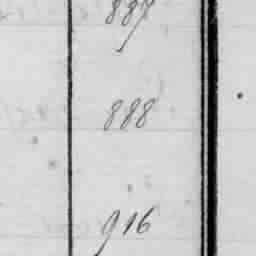 887
888
916